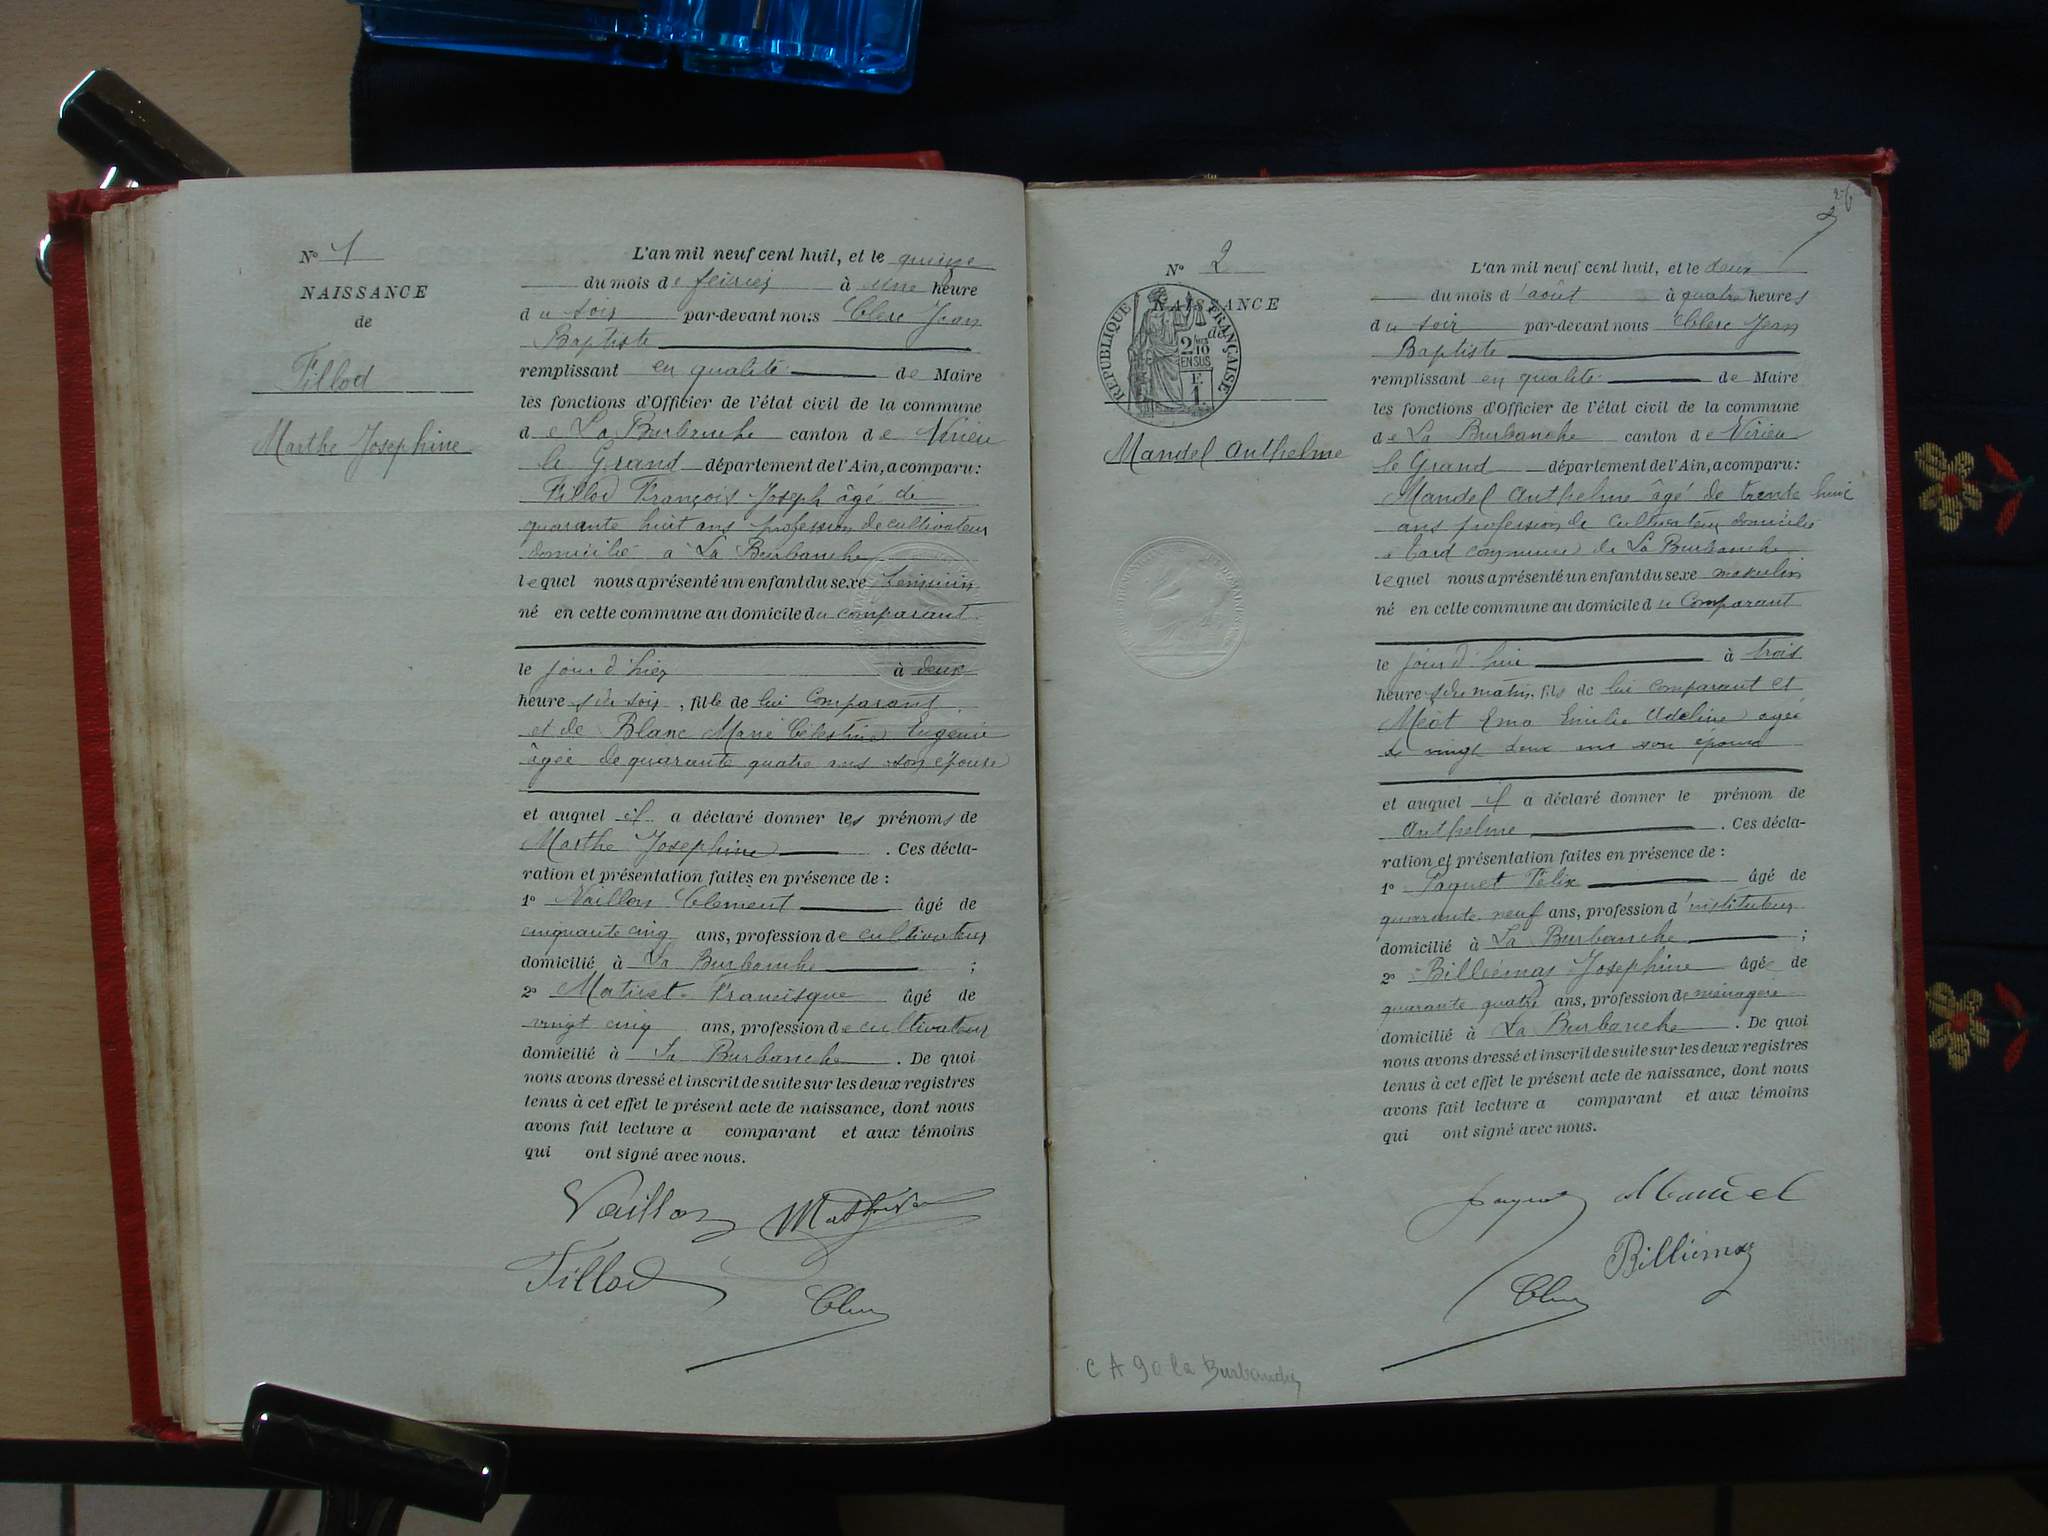 N° 1
NAISSANCE
de
Fillod
Marthe Josephine
L'an mil neuf cent huit, et le quinze
du mois de février à une heure
du soir par-devant nous Clerc Jean
Baptiste
remplissant en qualité de Maire
les fonctions d'Officier de l'état civil de la commune
de La Burbanche canton de Virieu
le Grand département de l'Ain, a comparu:
Fillod François Joseph âgé de
quarante huit ans profession de cultivateur
domicilié a La Burbanche
lequel nous a présenté un enfant du sexe féminin
né en cette commune au domicile du comparant
le jour d'hier à deux
heures du soir, fille de lui comparant
et de Blanc Marie Célestine Eugénie
âgée de quarante quatre ans son épouse
et auquel il a déclaré donner les prénoms de
Marthe Josephine . Ces décla-
ration et présentation faites en présence de :
1° Vaillon Clément âgé de
cinquante cinq ans, profession de cultivateur
domicilié à La Burbanche ;
2° Francisque âgé de
vingt cinq ans, profession de cultivateur
domicilié à La Burbanche . De quoi
nous avons dressé et inscrit de suite sur les deux registres
tenus à cet effet le présent acte de naissance, dont nous
avons fait lecture a comparant et aux témoins
qui ont signé avec nous.
Vaillon
Fillod
Clerc
N° 2
NAISSANCE
de
RÉPUBLIQUE FRANÇAISE
2/10
EN SUS
Mandel Anthelme
L'an mil neuf cent huit, et le deux
du mois d'août à quatre heures
du soir par-devant nous Clerc Jean
Baptiste
remplissant en qualité de Maire
les fonctions d'Officier de l'état civil de la commune
de La Burbanche canton de Virieu
le Grand département de l'Ain, a comparu:
Mandel Anthelme âgé de trente huit
ans profession de cultivateur domicilié
commune de La Burbanche
lequel nous a présenté un enfant du sexe masculin
né en cette commune au domicile du comparant
le jour d'hui à trois
heures du matin, fils de lui comparant et
Emilie Adeline agée
de vingt deux ans son épouse
et auquel il a déclaré donner le prénom de
Anthelme . Ces décla-
ration et présentation faites en présence de :
1° Paquet Félix âgé de
quarante neuf ans, profession d'instituteur
domicilié à La Burbanche ;
2° Billiémaz Josephine âgé de
quarante quatre ans, profession de ménagere
domicilié à La Burbanche . De quoi
nous avons dressé et inscrit de suite sur les deux registres
tenus à cet effet le présent acte de naissance, dont nous
avons fait lecture a comparant et aux témoins
qui ont signé avec nous.
Paquet Mandel
Billiémaz
Clerc
C A 90 la Burbanche